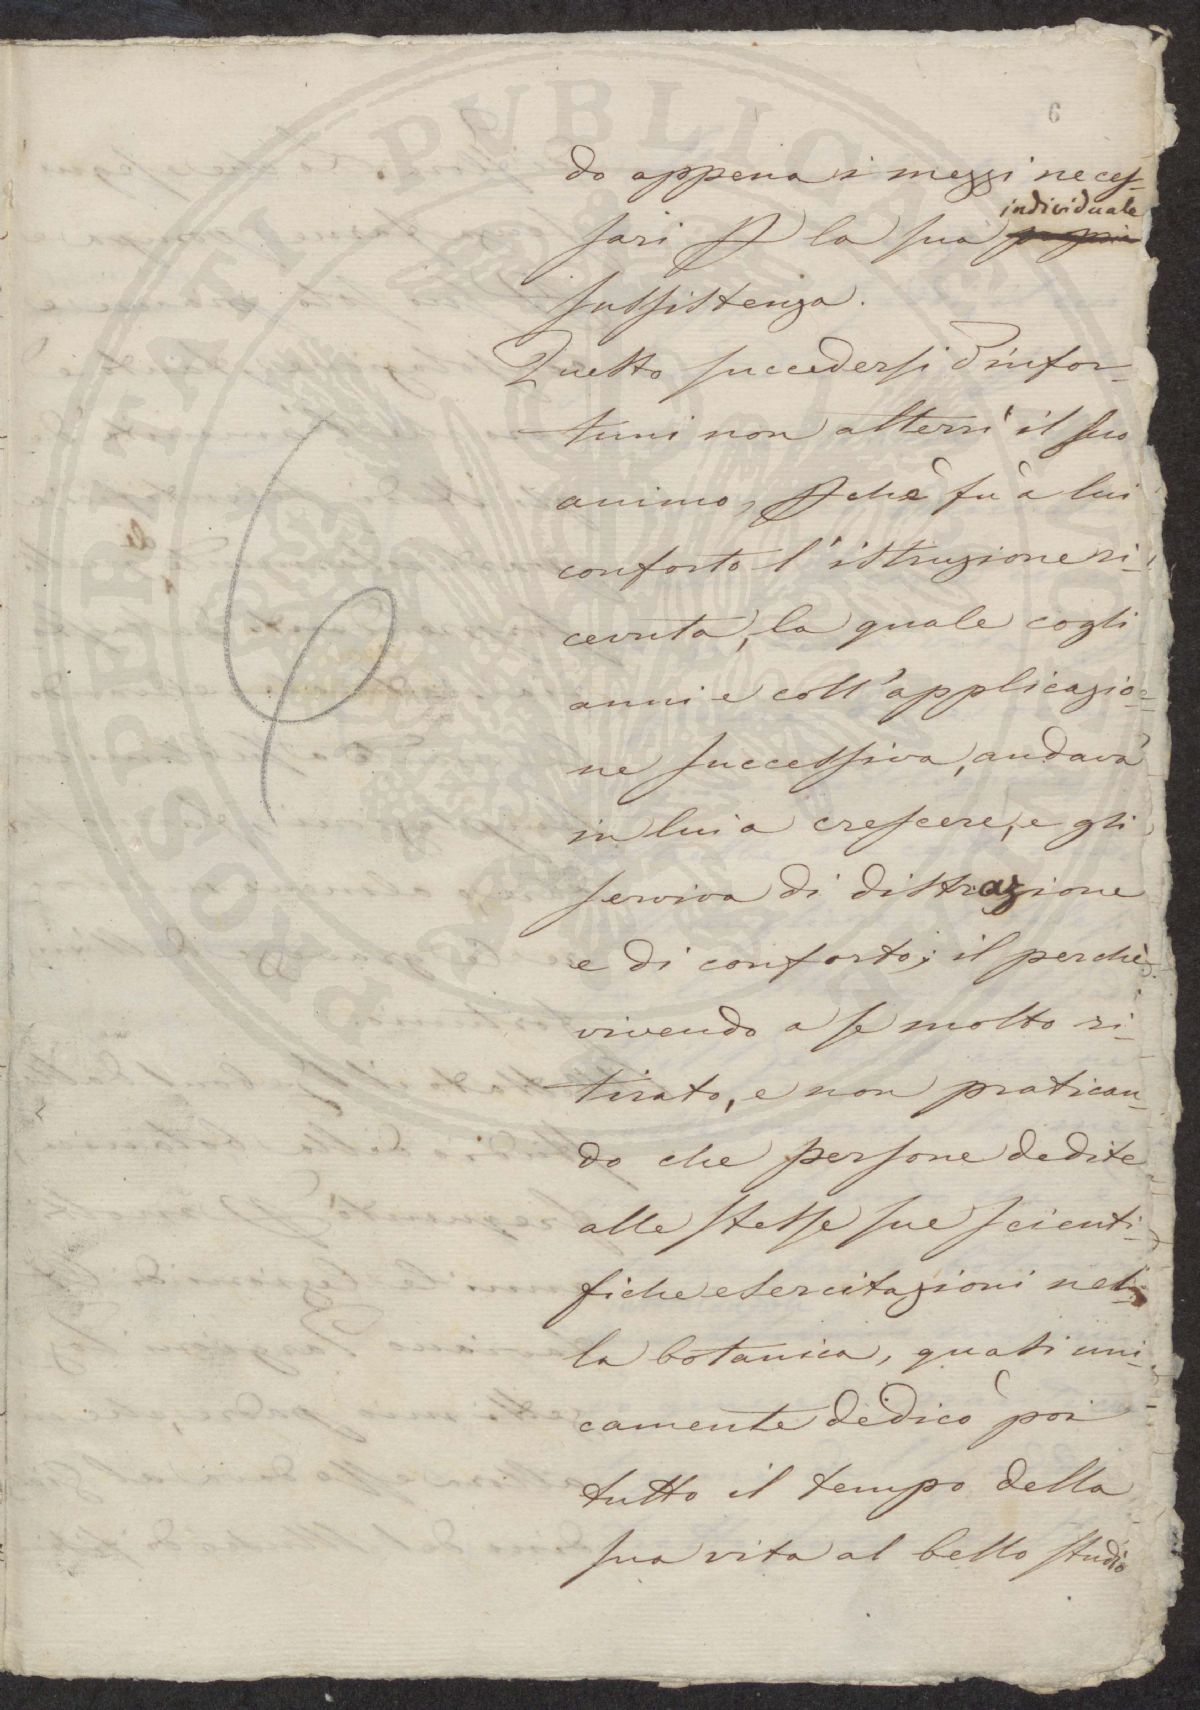 6
do appena i mezzi neces-
individuale
sari p la sua propria
sussistenza.
Questo succedersi d'infor-
tuni non atterrì il suo
animo, pchè fu a lui
conforto l'istruzione ri-
cevuta, la quale cogli
anni e coll'applicazio-
ne successiva, andava
in lui a crescere, e gli
serviva di distrazione
e di conforto; il perchè
vivendo a se molto ri-
tirato, e non pratican-
do che persone dedite
alle stesse sue scienti-
fiche esercitazioni nel-
la botanica, quasi uni-
camente dedicò poi
tutto il tempo della
sua vita al bello studio